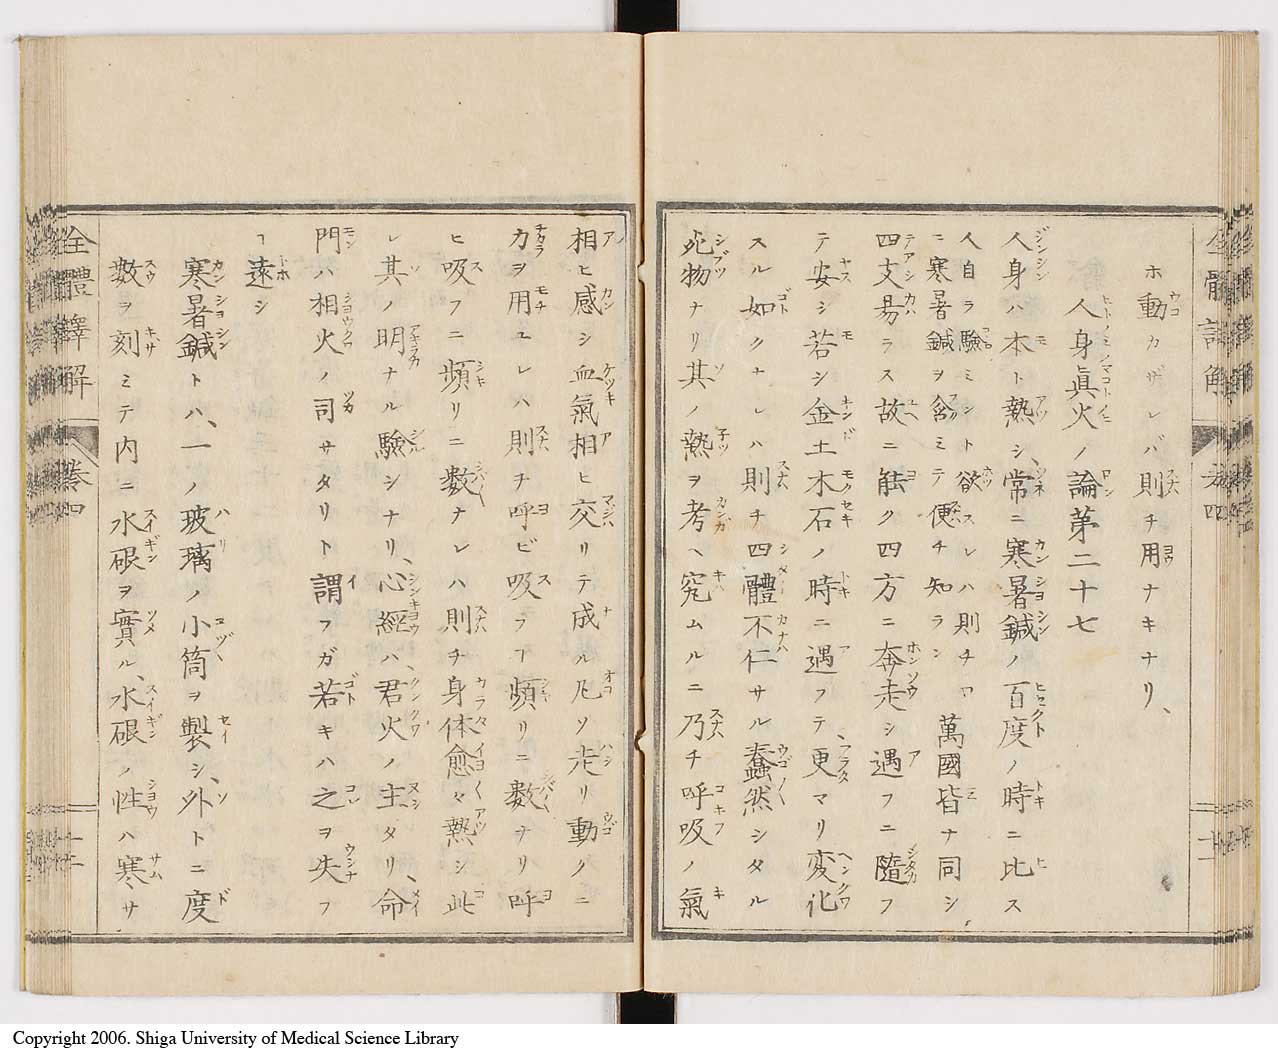 ホ動カザレバ則チ用ナキナリ、
人身眞火ノ論第二十七
人身ハ本ト熱シ、常ニ寒暑鍼ノ百度ノ時ニ比ス
人自ラ驗ミント欲スレハ則チ口ニ寒暑鍼ヲ含ミテ便チ知ラン 萬國皆ナ同シ
四支易ラス故ニ能ク四方ニ奔走シ遇フニ隨フ
テ安シ若シ金土木石ノ時ニ遇フテ、更マリ変化
スル如クナレハ則チ四體不仁サル蠢然シタル
死物ナリ其ノ熱ヲ考ヘ究ムルニ乃チ呼吸ノ氣
相ヒ感シ血氣相ヒ交リテ成ル凡ソ走リ動クニ
力ヲ用ユレハ則チ呼ビ吸フヿ頻リニ數ナリ呼
ヒ吸フニ頻リニ數ナレハ則チ身体愈々熱シ此
レ其ノ明ナル驗シナリ、心經ハ君火ノ主タリ、命
門ハ相火ノ司サタリト謂フガ若キハ之ヲ失フ
ヿ遠シ
寒暑鍼トハ、一ノ玻璃ノ小筒ヲ製シ、外トニ度
數ヲ刻ミテ内ニ水硍ヲ實ル、水硍ノ性ハ寒サ
全體譯解 卷四
十二
Copyright 2006. Shiga University of Medical Science Library